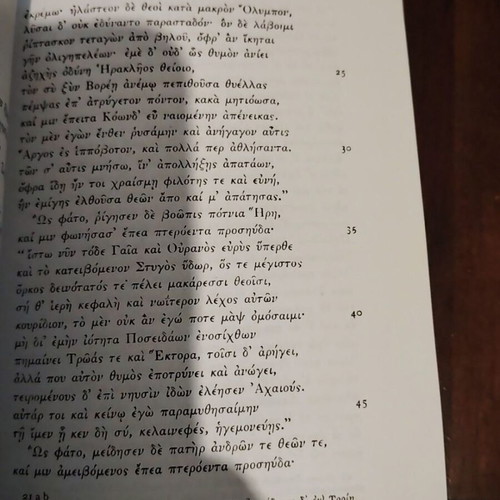 ἐκρέμω· ἠλάστεον δὲ θεοὶ κατὰ μακρὸν Ὄλυμπον,
λῦσαι δ' οὐκ ἐδύναντο παρασταδόν· ὃν δὲ λάβοιμι
ῥίπτασκον τεταγὼν ἀπὸ βηλοῦ, ὄφρ' ἂν ἵκηται
γῆν ὀλιγηπελέων· ἐμὲ δ' οὐδ' ὣς θυμὸν ἀνίει
ἀζηχὴς ὀδύνη Ἡρακλῆος θείοιο, 25
τὸν σὺ ξὺν Βορέῃ ἀνέμῳ πεπιθοῦσα θυέλλας
πέμψας ἐπ' ἀτρύγετον πόντον, κακὰ μητιόωσα,
καί μιν ἔπειτα Κόωνδ' εὖ ναιομένην ἀπένεικας.
τὸν μὲν ἐγὼν ἔνθεν ῥυσάμην καὶ ἀνήγαγον αὖτις
Ἄργος ἐς ἱππόβοτον, καὶ πολλά περ ἀθλήσαντα. 30
τῶν σ' αὖτις μνήσω, ἵν' ἀπολλήξῃς ἀπατάων,
ὄφρα ἴδῃ ἤν τοι χραίσμῃ φιλότης τε καὶ εὐνή,
ἣν ἐμίγης ἐλθοῦσα θεῶν ἄπο καί μ' ἀπάτησας."
"Ὣς φάτο, ῥίγησεν δὲ βοῶπις πότνια Ἥρη,
καί μιν φωνήσασ' ἔπεα πτερόεντα προσηύδα· 35
"ἴστω νῦν τόδε Γαῖα καὶ Οὐρανὸς εὐρὺς ὕπερθε
καὶ τὸ κατειβόμενον Στυγὸς ὕδωρ, ὅς τε μέγιστος
ὅρκος δεινότατός τε πέλει μακάρεσσι θεοῖσι,
σή θ' ἱερὴ κεφαλὴ καὶ νωΐτερον λέχος αὐτῶν
κουρίδιον, τὸ μὲν οὐκ ἂν ἐγώ ποτε μὰψ ὀμόσαιμι· 40
μὴ δι' ἐμὴν ἰότητα Ποσειδάων ἐνοσίχθων
πημαίνει Τρῶάς τε καὶ Ἕκτορα, τοῖσι δ' ἀρήγει,
ἀλλά που αὐτὸν θυμὸς ἐποτρύνει καὶ ἀνώγει,
τειρομένους δ' ἐπὶ νηυσὶν ἰδὼν ἐλέησεν Ἀχαιούς.
αὐτάρ τοι καὶ κείνῳ ἐγὼ παραμυθησαίμην 45
τῇ ἴμεν ᾗ κεν δὴ σύ, κελαινεφές, ἡγεμονεύῃς."
"Ὣς φάτο, μείδησεν δὲ πατὴρ ἀνδρῶν τε θεῶν τε,
καί μιν ἀμειβόμενος ἔπεα πτερόεντα προσηύδα·